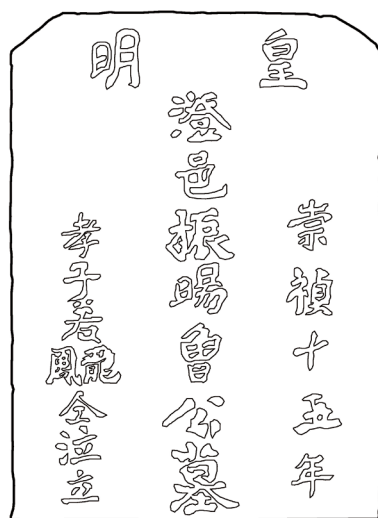 皇明
崇禎十五年
澄邑振暘曾公墓
孝子若龍鳳仝泣立